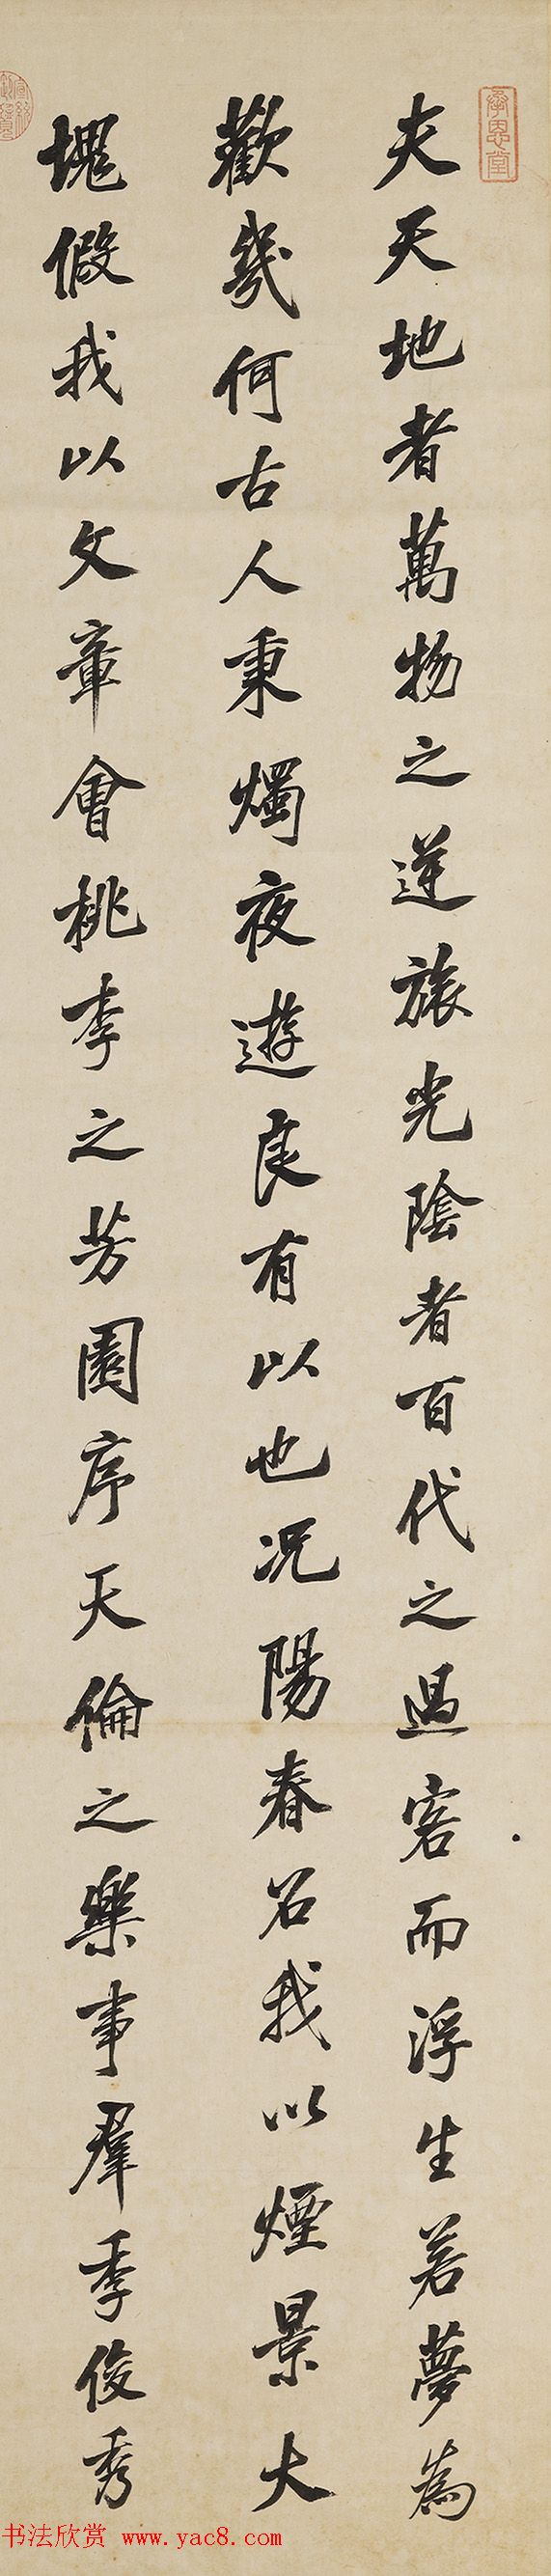 承恩堂
夫天地者萬物之逆旅光陰者百代之過客而浮生若夢為
歡幾何古人秉燭夜遊良有以也况陽春召我以煙景大
塊假我以文章會桃李之芳園序天倫之樂事羣季俊秀
书法欣赏 www.yac8.com